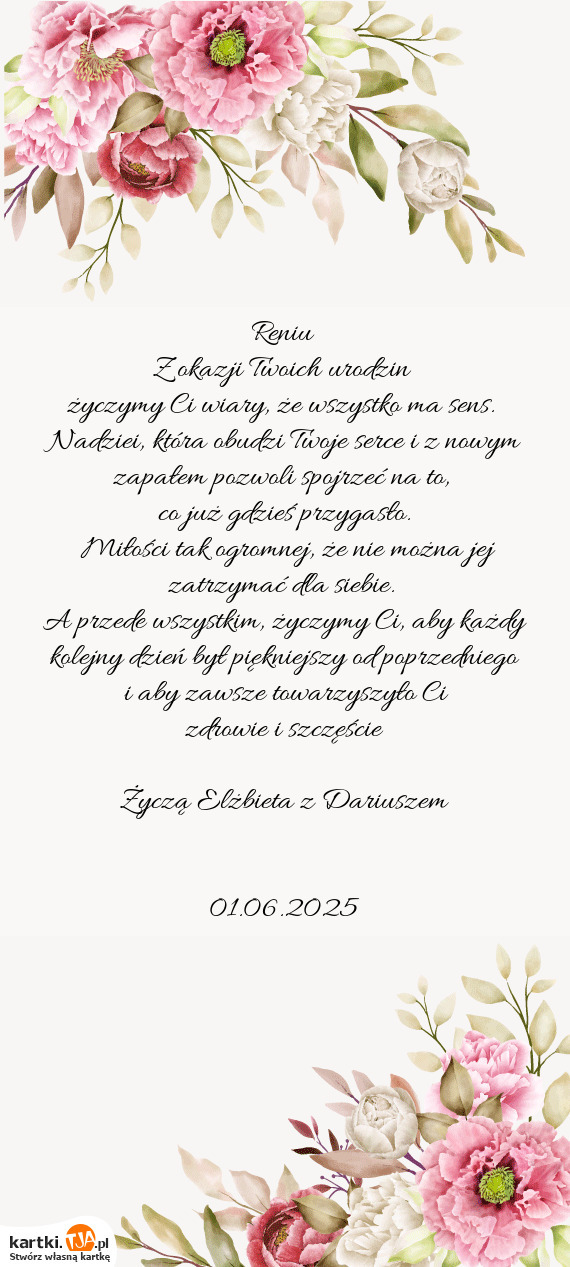 Reniu
Z okazji Twoich urodzin
życzymy Ci wiary, że wszystko ma sens.
Nadziei, która obudzi Twoje serce i z nowym
zapałem pozwoli spojrzeć na to,
co już gdzieś przygasło.
Miłości tak ogromnej, że nie można jej
zatrzymać dla siebie.
A przede wszystkim, życzymy Ci, aby każdy
kolejny dzień był piękniejszy od poprzedniego
i aby zawsze towarzyszyło Ci
zdrowie i szczęście
Życzą Elżbieta z Dariuszem
01.06.2025
kartki.TJA.pl
Stwórz własną kartkę